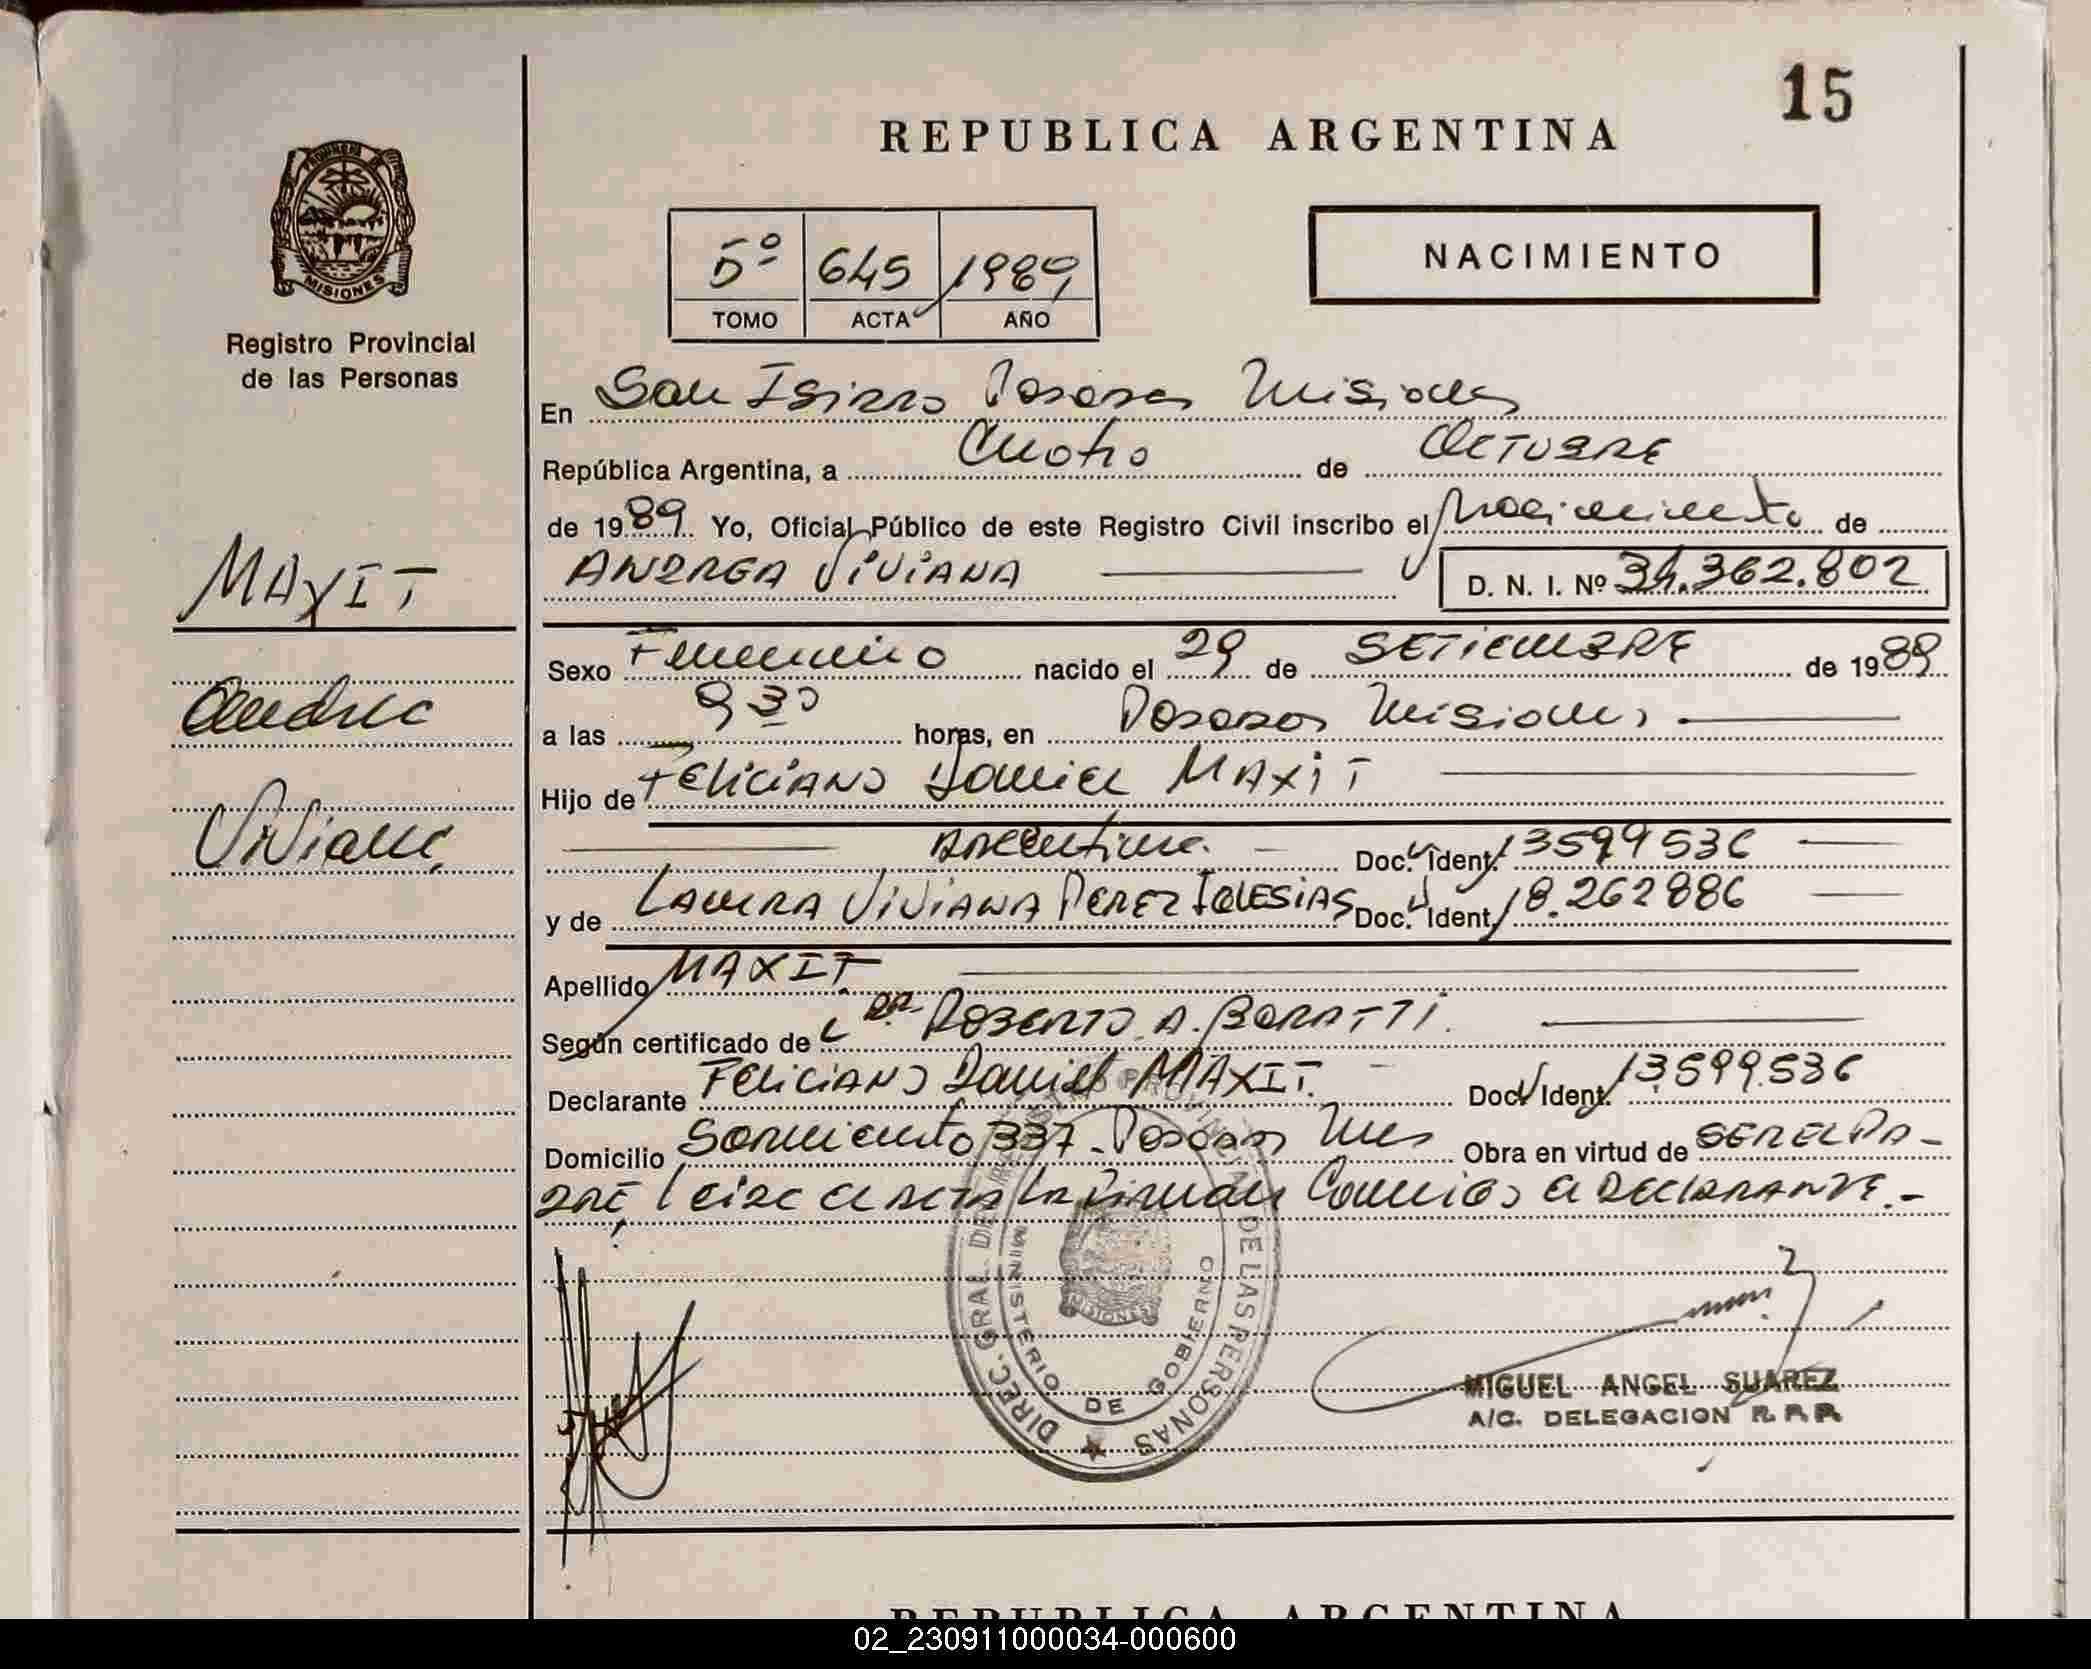 15
REPUBLICA ARGENTINA
PROVINCIA DE
MISIONES
Registro Provincial
de las Personas
5º 645 1989
TOMO ACTA AÑO
NACIMIENTO
En San Isidro Posadas Misiones
República Argentina, a Cuatro de OCTUBRE
de 1989. Yo, Oficial Público de este Registro Civil inscribo el Nacimiento de
ANDREA ViViANA D. N. I. Nº 34.362.802
MAXIT
Andrea
Viviana
Sexo Femenino nacido el 29 de SETiEMBRE de 1989
a las 9 30 horas, en Posadas Misiones
Hijo de FELiCiANO Daniel MAXiT
Argentina. Doc. Ident. 13599536
y de LAURA ViViANA PEREZ IGLESIAS Doc. Ident. 18.262886
Apellido MAXIT
Según certificado de DR. ROBERTO A. BORATTi.
Declarante FELiCiANO Daniel MAXIT. Doc. Ident. 13.599.536
Domicilio Sarmiento 337 - Posadas Mnes Obra en virtud de SER EL PA-
DRE, Leida el ACTA La Firman Conmigo el DECLARANTE.-
DIREC. GRAL. DEL REGISTRO PROVINCIAL DE LAS PERSONAS
MINISTERIO DE GOBIERNO
MISIONES
MIGUEL ANGEL SUAREZ
A/C. DELEGACION R. P. P.
REPUBLICA ARGENTINA
02_230911000034-000600